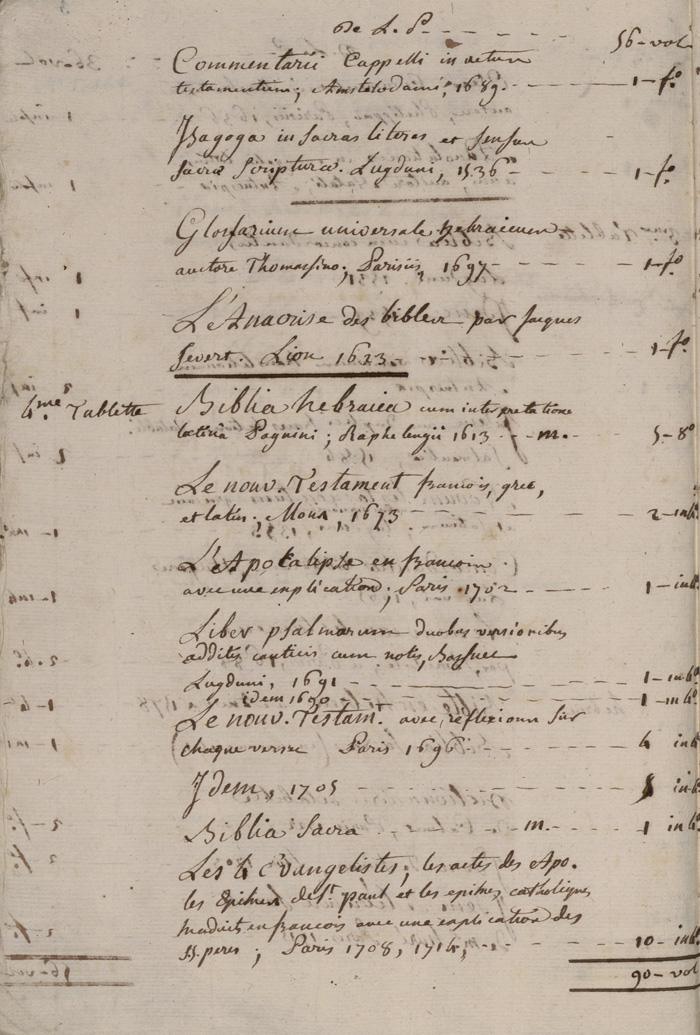 de L. P. - - - - - 56 - vol
Commentarii Cappelli in vetus
testamentum; Amstelodami, 1689. - - - 1 - f.º
Isagoga in sacras literas et sensus
sacra scriptura. Lugduni, 1536 - - - - 1 - f.º
Glossarium universale hebraicum
auctore Thomassino; Parisiis, 1697 - - - 1 - f.º
L'Anaorise des bibles par Jaques
severt. Lion 1623 - - - - 1 - f.º
4.me Tablette Biblia hebraica cum interpretatione
latina Pagnini; Raphelengii 1613 - - m. - 5 - 8º
Le nouv. Testament francois, grec,
et latin; Mons, 1673 - - - - 2 - in 8º
L'Apokalipse en francois
avec une explication; Paris 1702 - - - - 1 - in 8
Liber psalmorum duobus versionibus
additis canticis cum notis, Bossuet
Lugduni, 1691 - - - - 1 - in 8º
idem 1690 - - - - 1 - in 8º
Le nouv. Testamt. avec réflexions sur
chaque verset Paris 1696 - - - - 4 in 8
Idem, 1705 - - - - 8 in 8
Biblia Sacra - - m. - - - 1 in 8º
Les 4 Evangelistes; les actes des Apo.
les Epitres de St. paul et les epitres catholiques
traduits en francois avec une explication des
SS. peres; Paris 1708, 1714, - - - - 10 - in 8
90 - vol